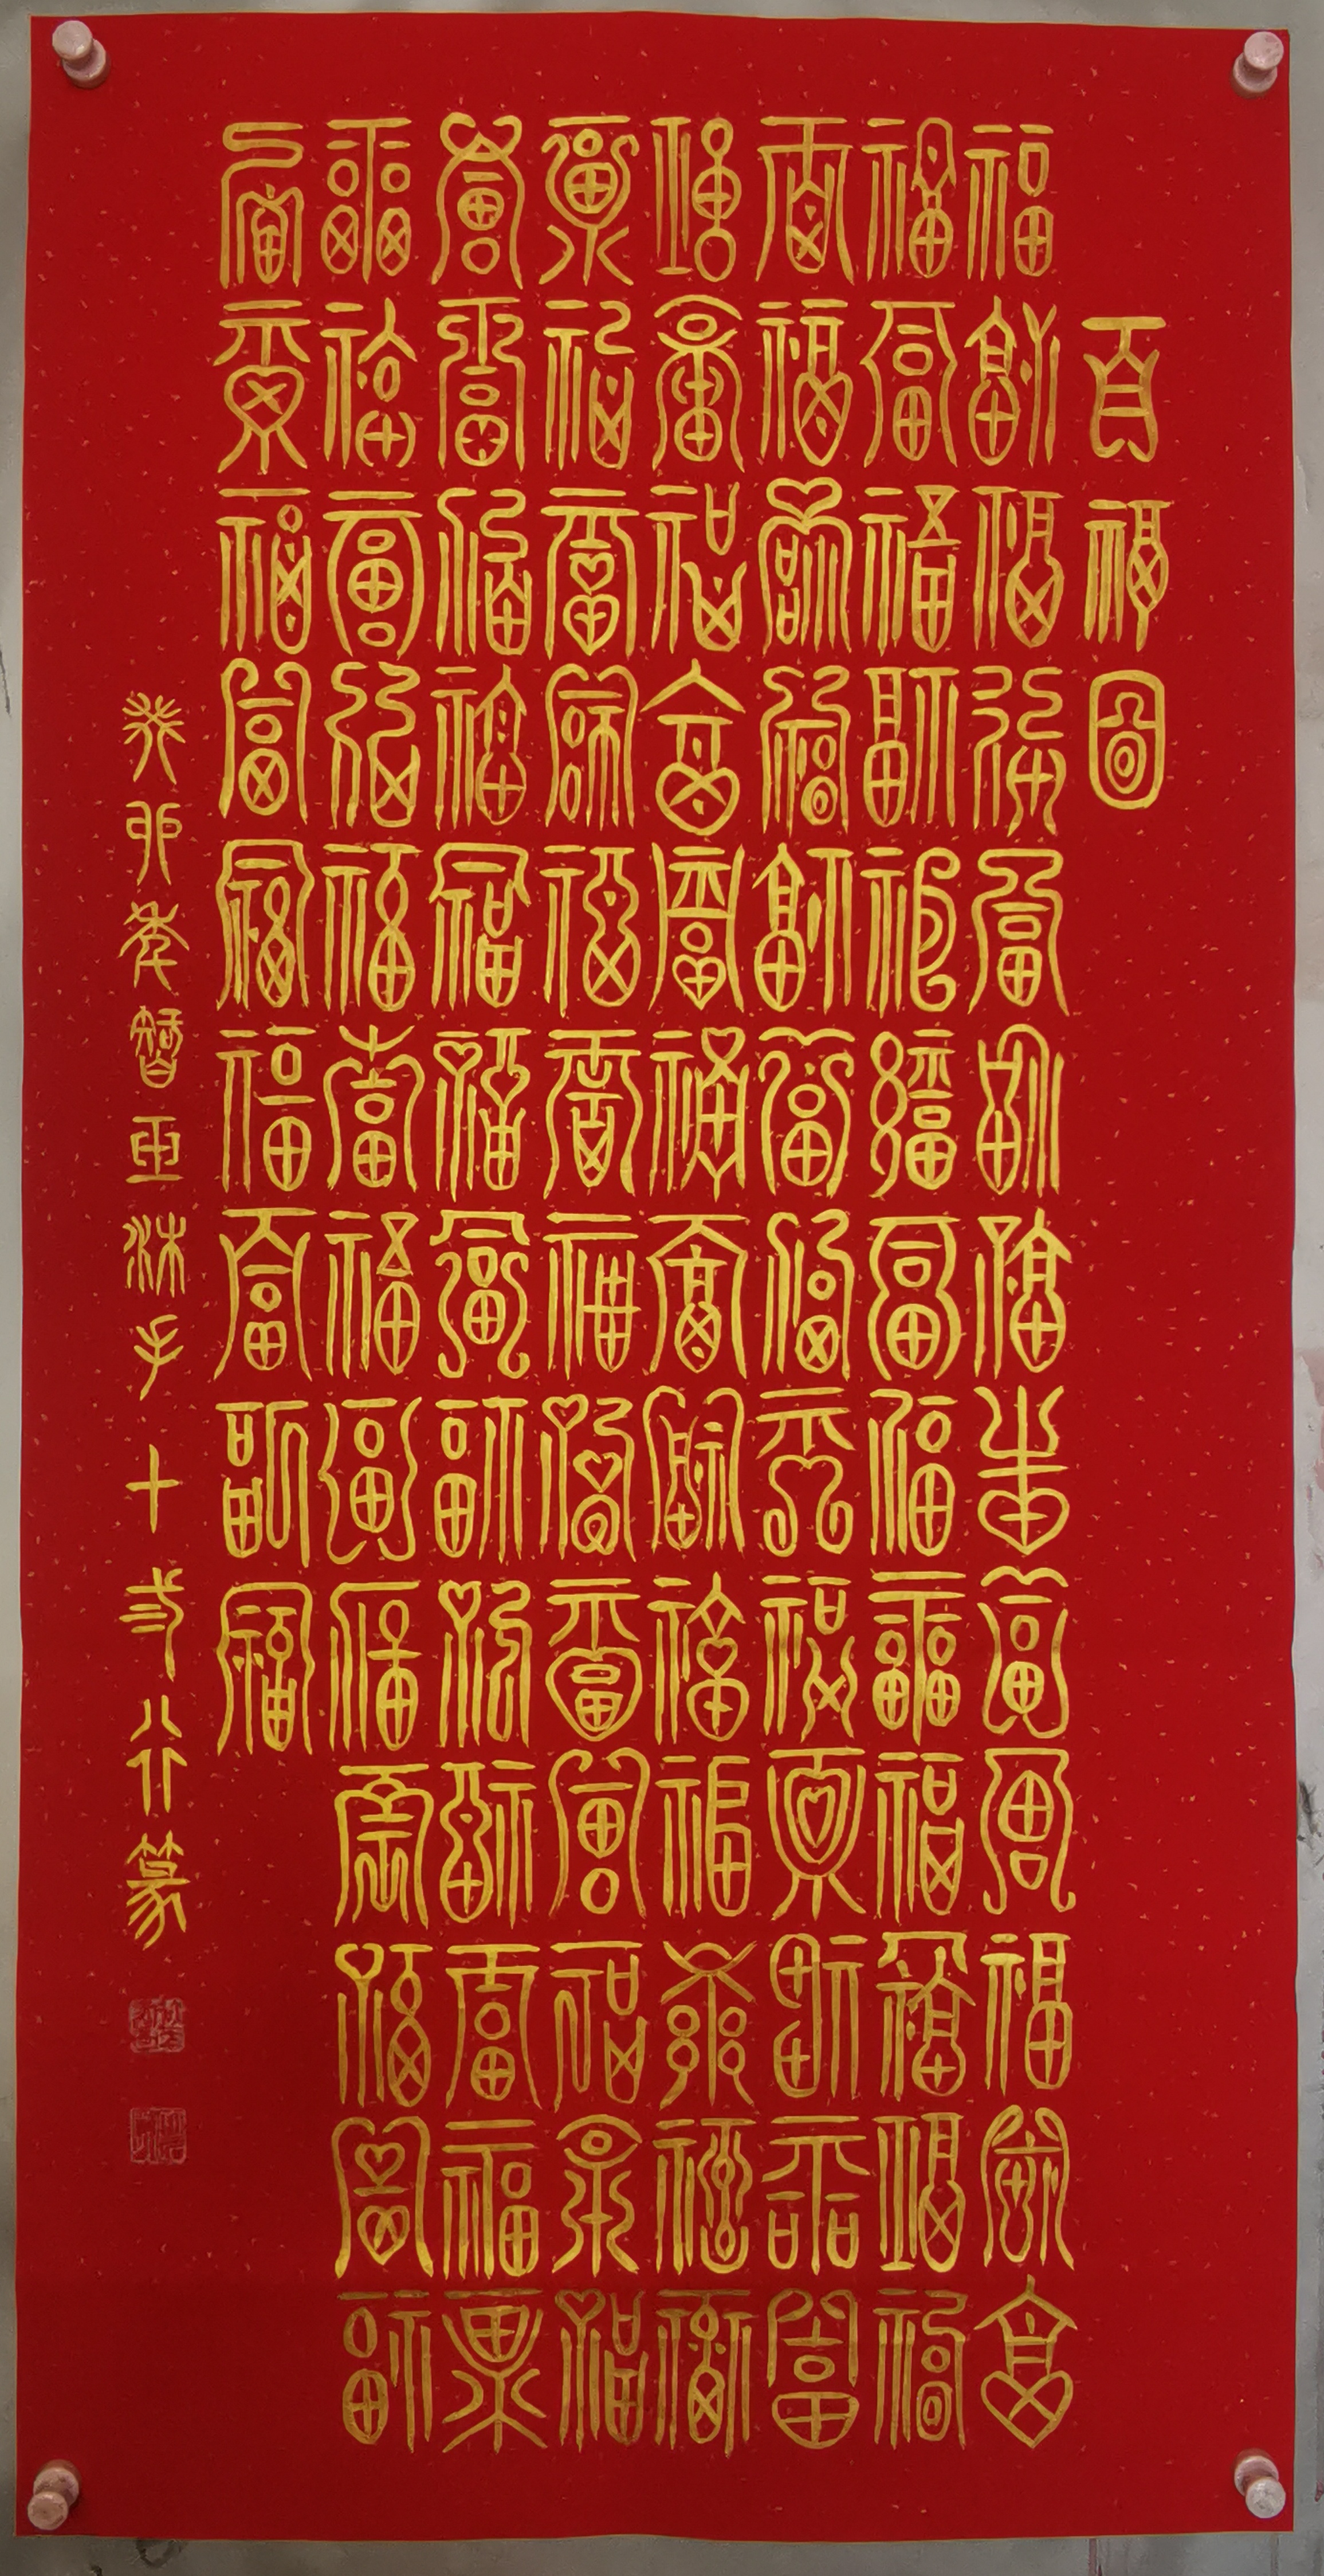 百福圖
福福福福福福福福福福福福福
福福福福福福福福福福福福福
福福福福福福福福福福福福福
福福福福福福福福福福福福福
福福福福福福福福福福福福福
福福福福福福福福福福福福福
福福福福福福福福福福福福福
福福福福福福福福福
癸卯年智沐手十行篆